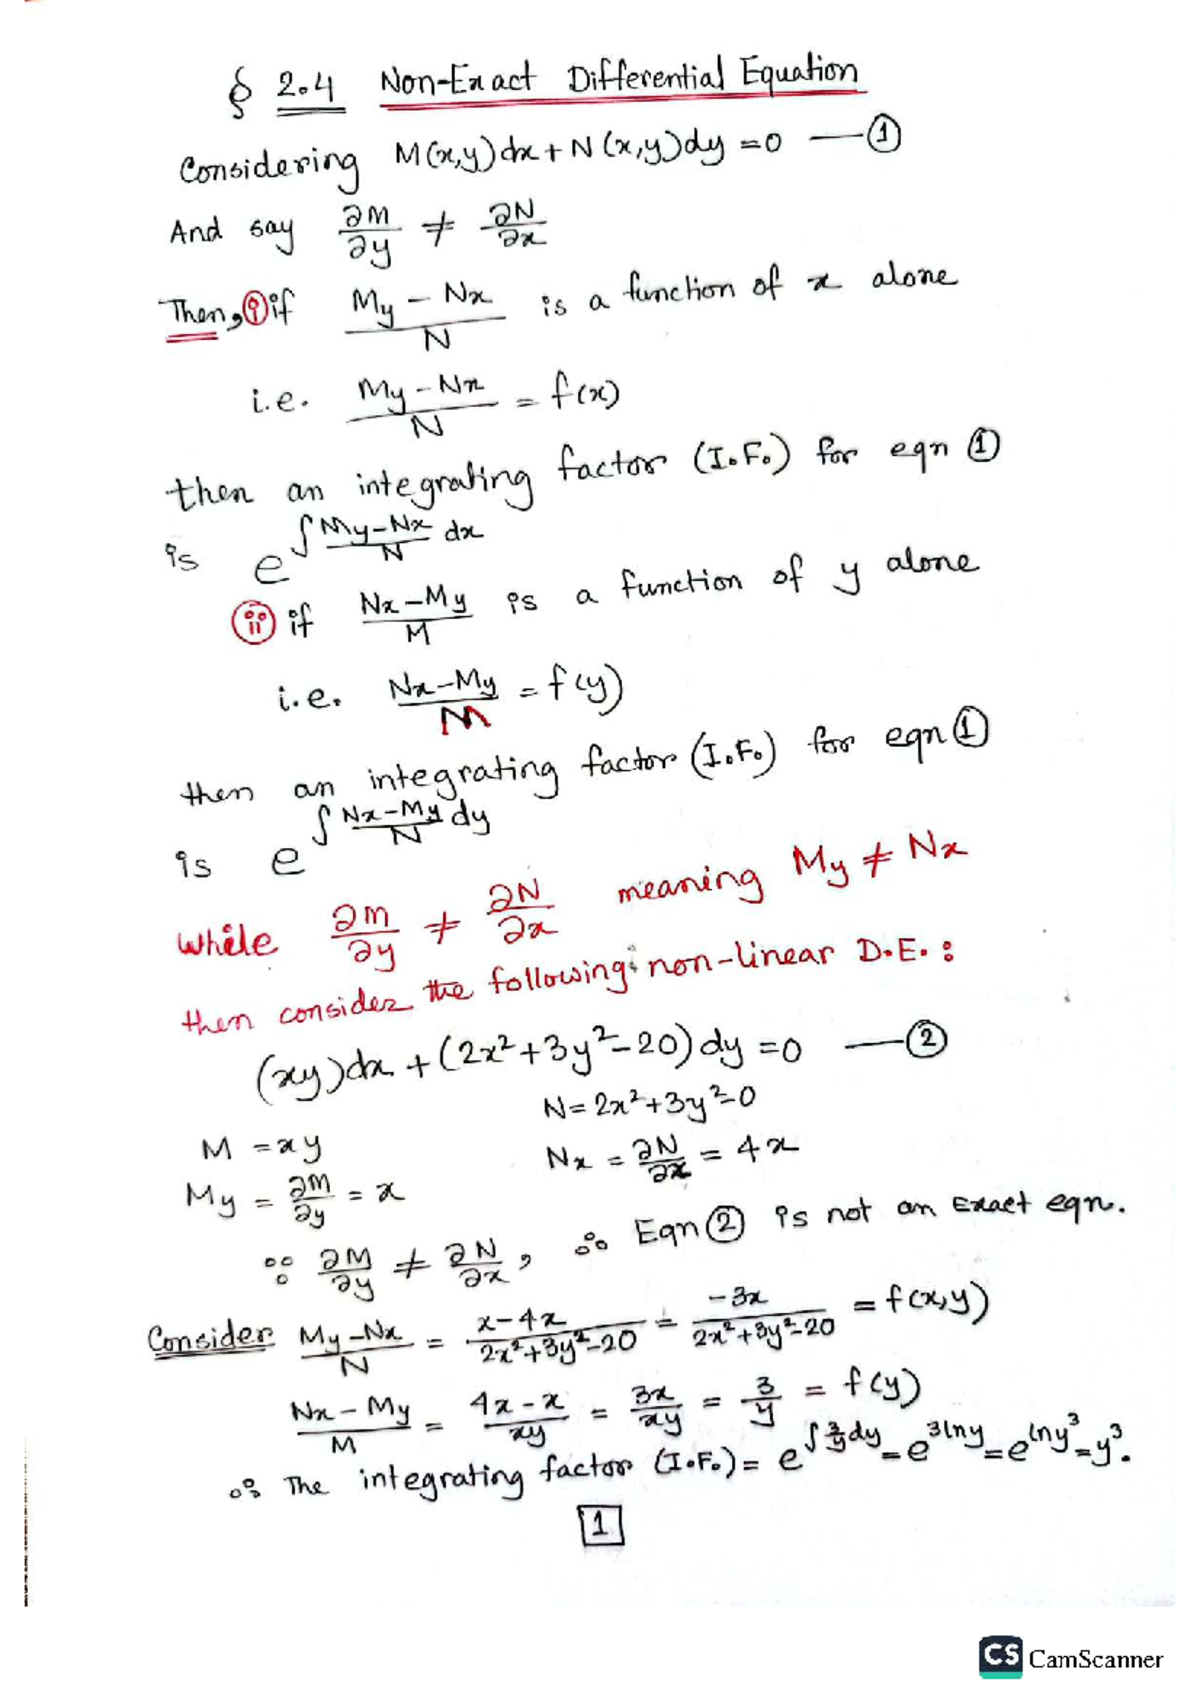 § 2.4 Non-Exact Differential Equation
Considering M(x,y)dx + N(x,y)dy = 0 —①
And say ∂M/∂y ≠ ∂N/∂x
Then, ⓘ if (My - Nx)/N is a function of x alone
i.e. (My - Nx)/N = f(x)
then an integrating factor (I.F.) for eqn ①
is e^∫(My-Nx)/N dx
ⓘⓘ if (Nx - My)/M is a function of y alone
i.e. (Nx - My)/M = f(y)
then an integrating factor (I.F.) for eqn ①
is e^∫(Nx-My)/N dy
while ∂M/∂y ≠ ∂N/∂x meaning My ≠ Nx
then consider the following non-linear D.E. :
(xy)dx + (2x²+3y²-20)dy = 0 —②
N = 2x²+3y²-0
M = xy
Nx = ∂N/∂x = 4x
My = ∂M/∂y = x
∵ ∂M/∂y ≠ ∂N/∂x, ∴ Eqn ② is not an Exact eqn.
Consider (My-Nx)/N = (x-4x)/(2x²+3y²-20) = -3x/(2x²+3y²-20) = f(x,y)
(Nx - My)/M = (4x - x)/xy = 3x/xy = 3/y = f(y)
∴ The integrating factor (I.F.) = e^∫3/y dy = e^3lny = e^lny³ = y³.
1
CS CamScanner